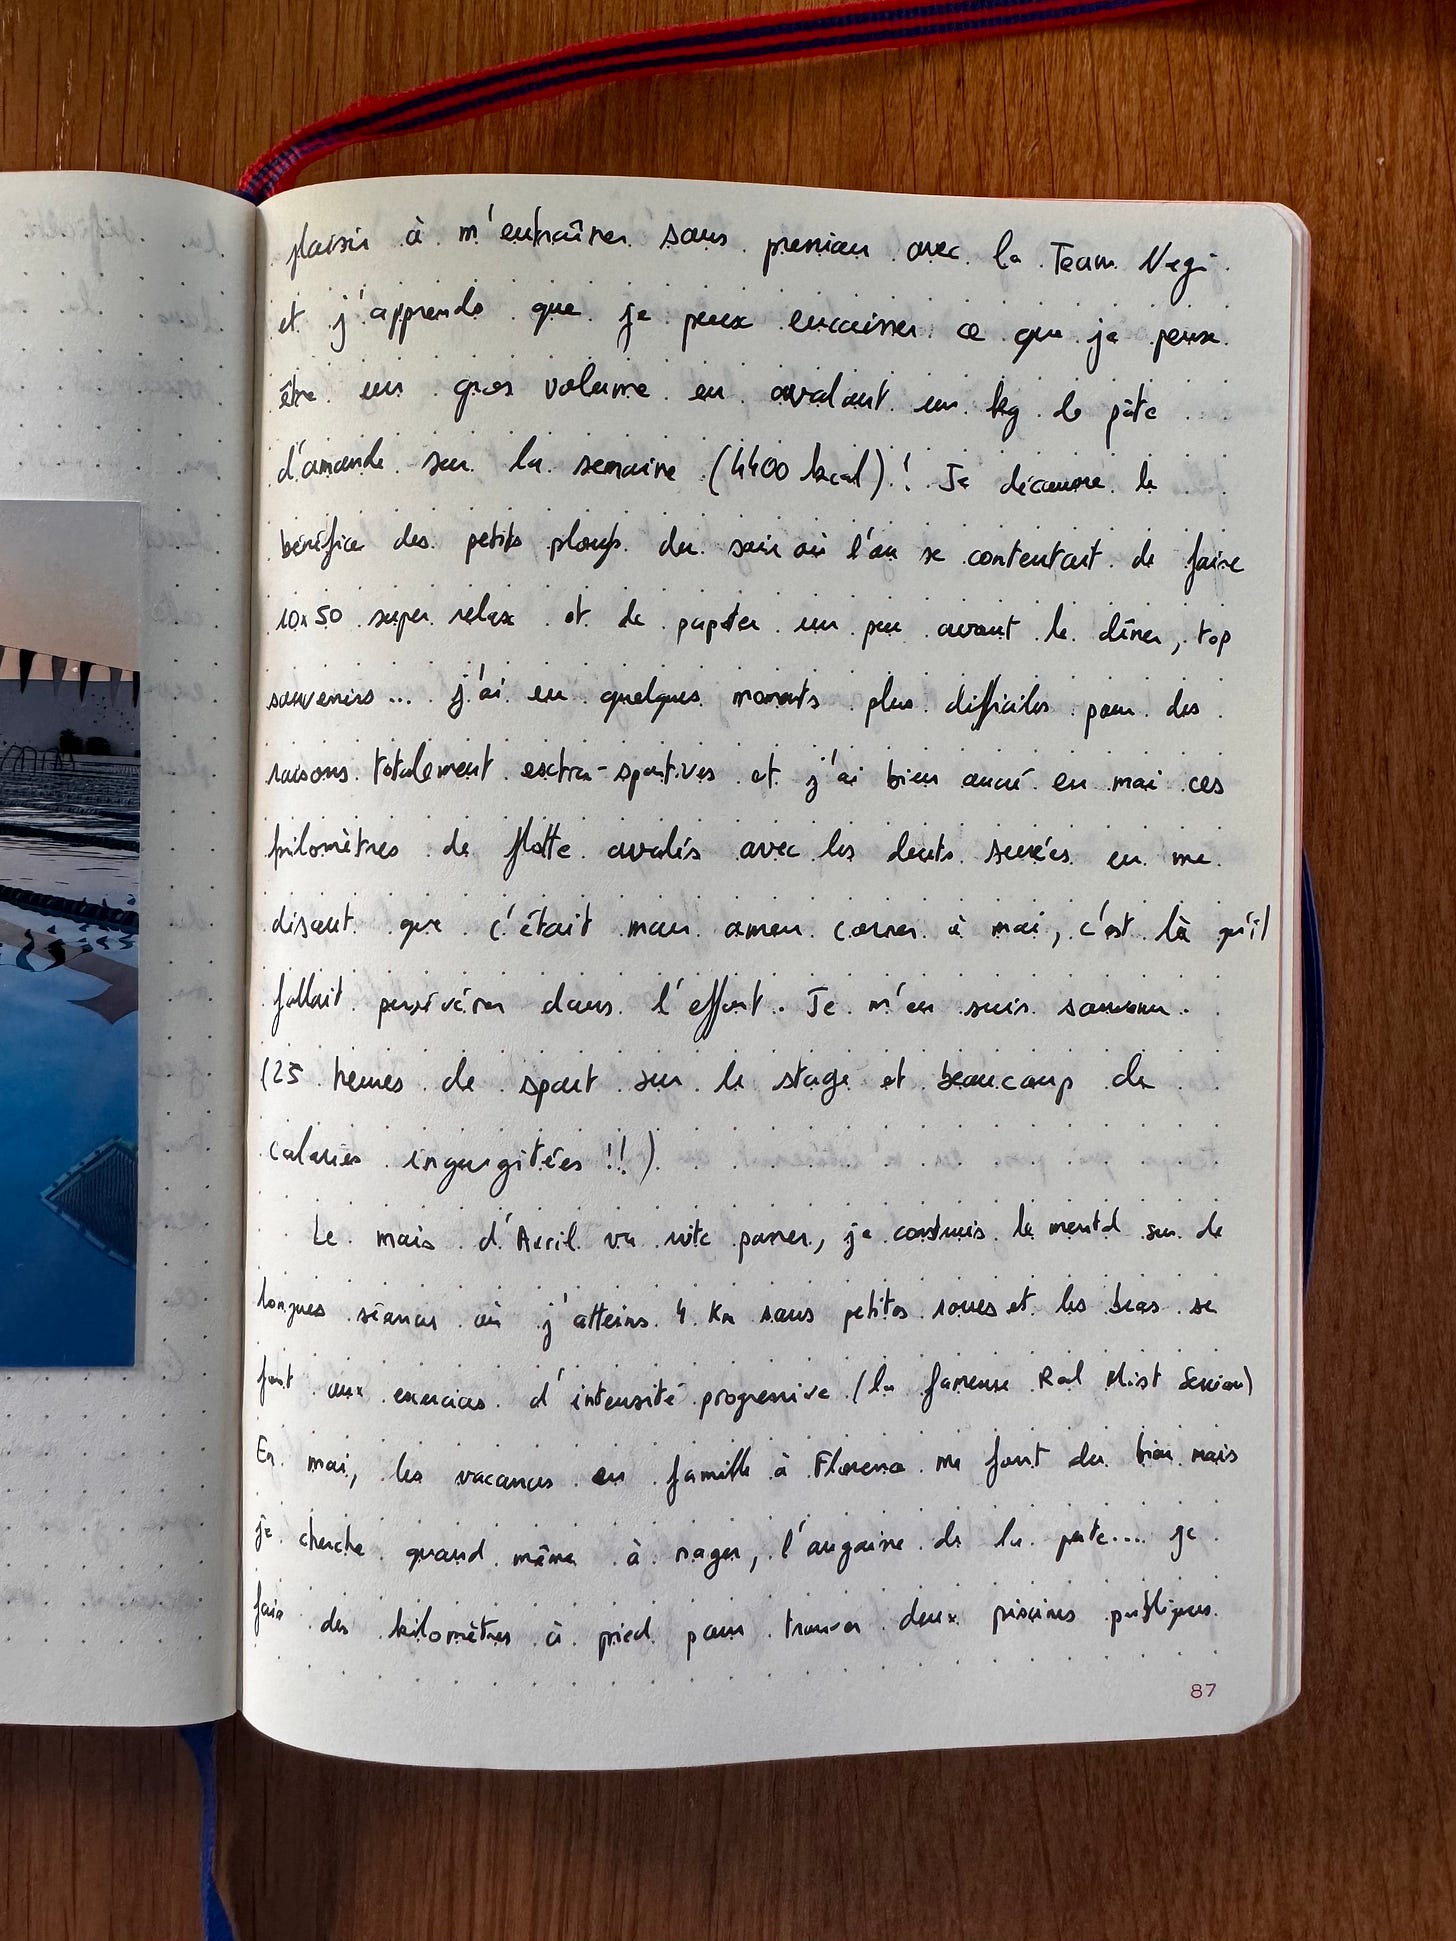 plaisir à m'entraîner sans pression avec la Team Negi
et j'apprends que je peux encaisser ce que je pense
être un gros volume en avalant un kg de pâte
d'amande sur la semaine (4400 kcal)! Je découvre le
bénéfice des petits ploufs du soir où l'on se contentait de faire
10x50 super relax et de papoter un peu avant le dîner, top
souvenirs... j'ai eu quelques moments plus difficiles pour des
raisons totalement extra-sportives et j'ai bien ancré en moi ces
kilomètres de flotte avalés avec les dents serrées en me
disant que c'était mon amen corner à moi, c'est là qu'il
fallait persévérer dans l'effort. Je m'en suis souvenu.
(25 heures de sport sur le stage et beaucoup de
calories ingurgitées!!)
Le mois d'Avril va vite passer, je construis le mental sur de
longues séances où j'atteins 4 Km sans petites roues et les bras se
font aux exercices d'intensité progressive (la fameuse Red Mist Session)
En mai, les vacances en famille à Florence me font du bien mais
je cherche quand même à nager, l'angoisse de la perte.... je
fais des kilomètres à pied pour trouver deux piscines publiques
87